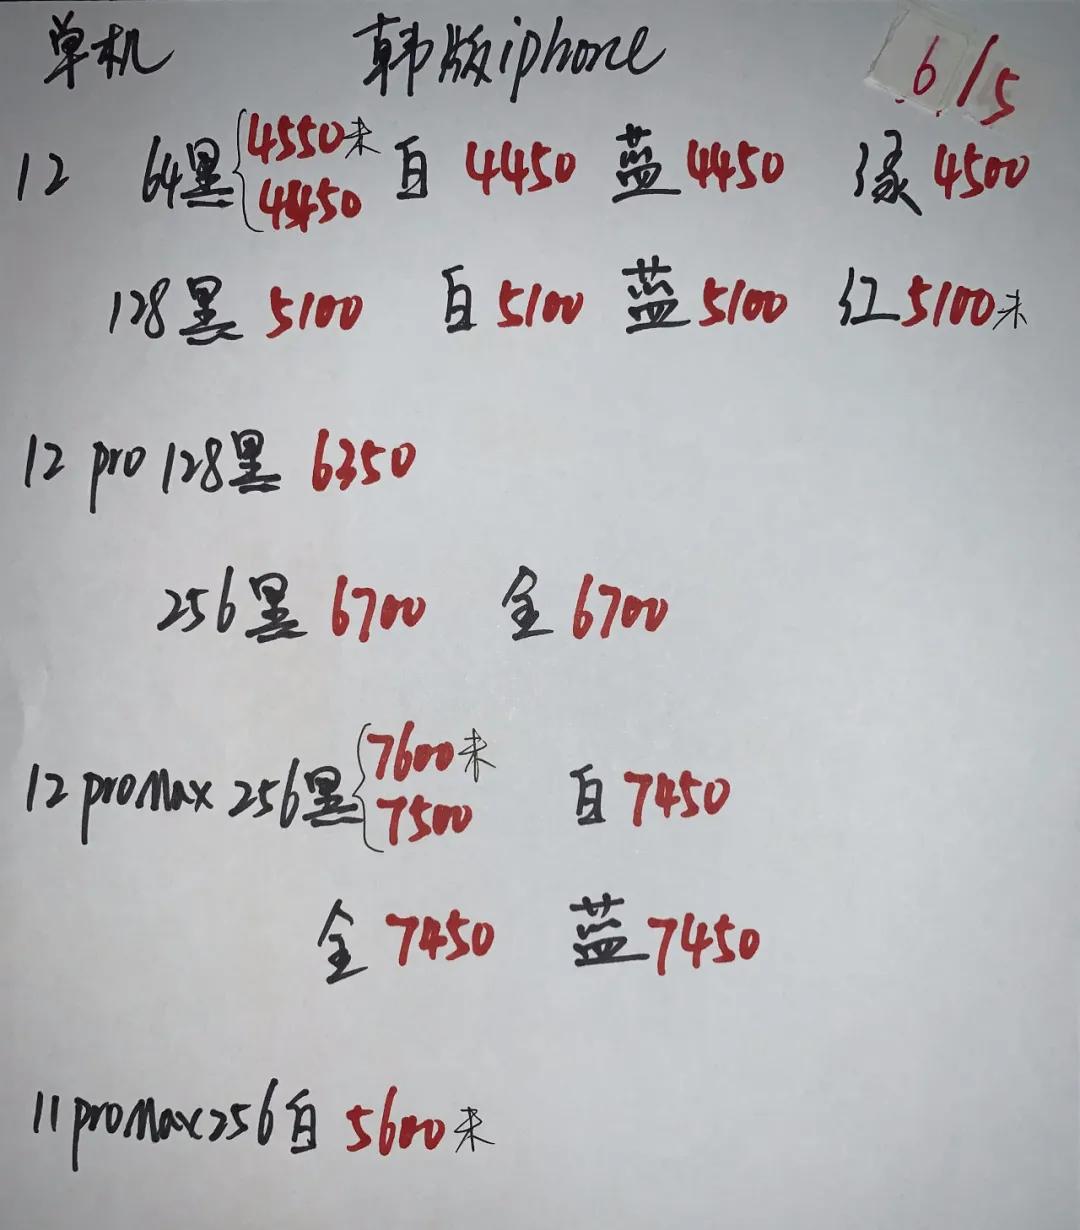 单机 韩版iphone 6/5
12 64黑{4550未 4450 白 4450 蓝 4450 绿 4500
128黑 5100 白 5100 蓝 5100 红 5100未
12 pro 128黑 6350
256黑 6700 金 6700
12 proMax 256黑{7600未 7500 白 7450
金 7450 蓝 7450
11 proMax 256白 5600未